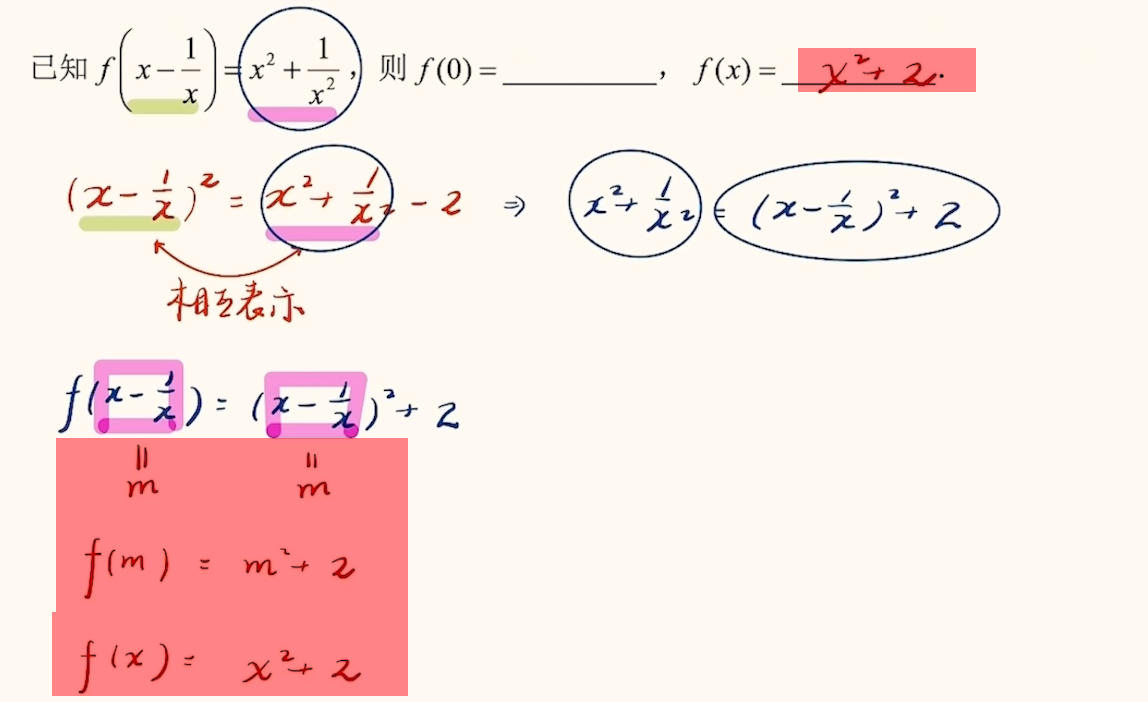 已知 f(x - 1/x) = x² + 1/x², 则 f(0) = ________, f(x) = x² + 2.
(x - 1/x)² = x² + 1/x² - 2 ⇒ x² + 1/x² = (x - 1/x)² + 2
相互表示
f(x - 1/x) = (x - 1/x)² + 2
= =
m m
f(m) = m² + 2
f(x) = x² + 2